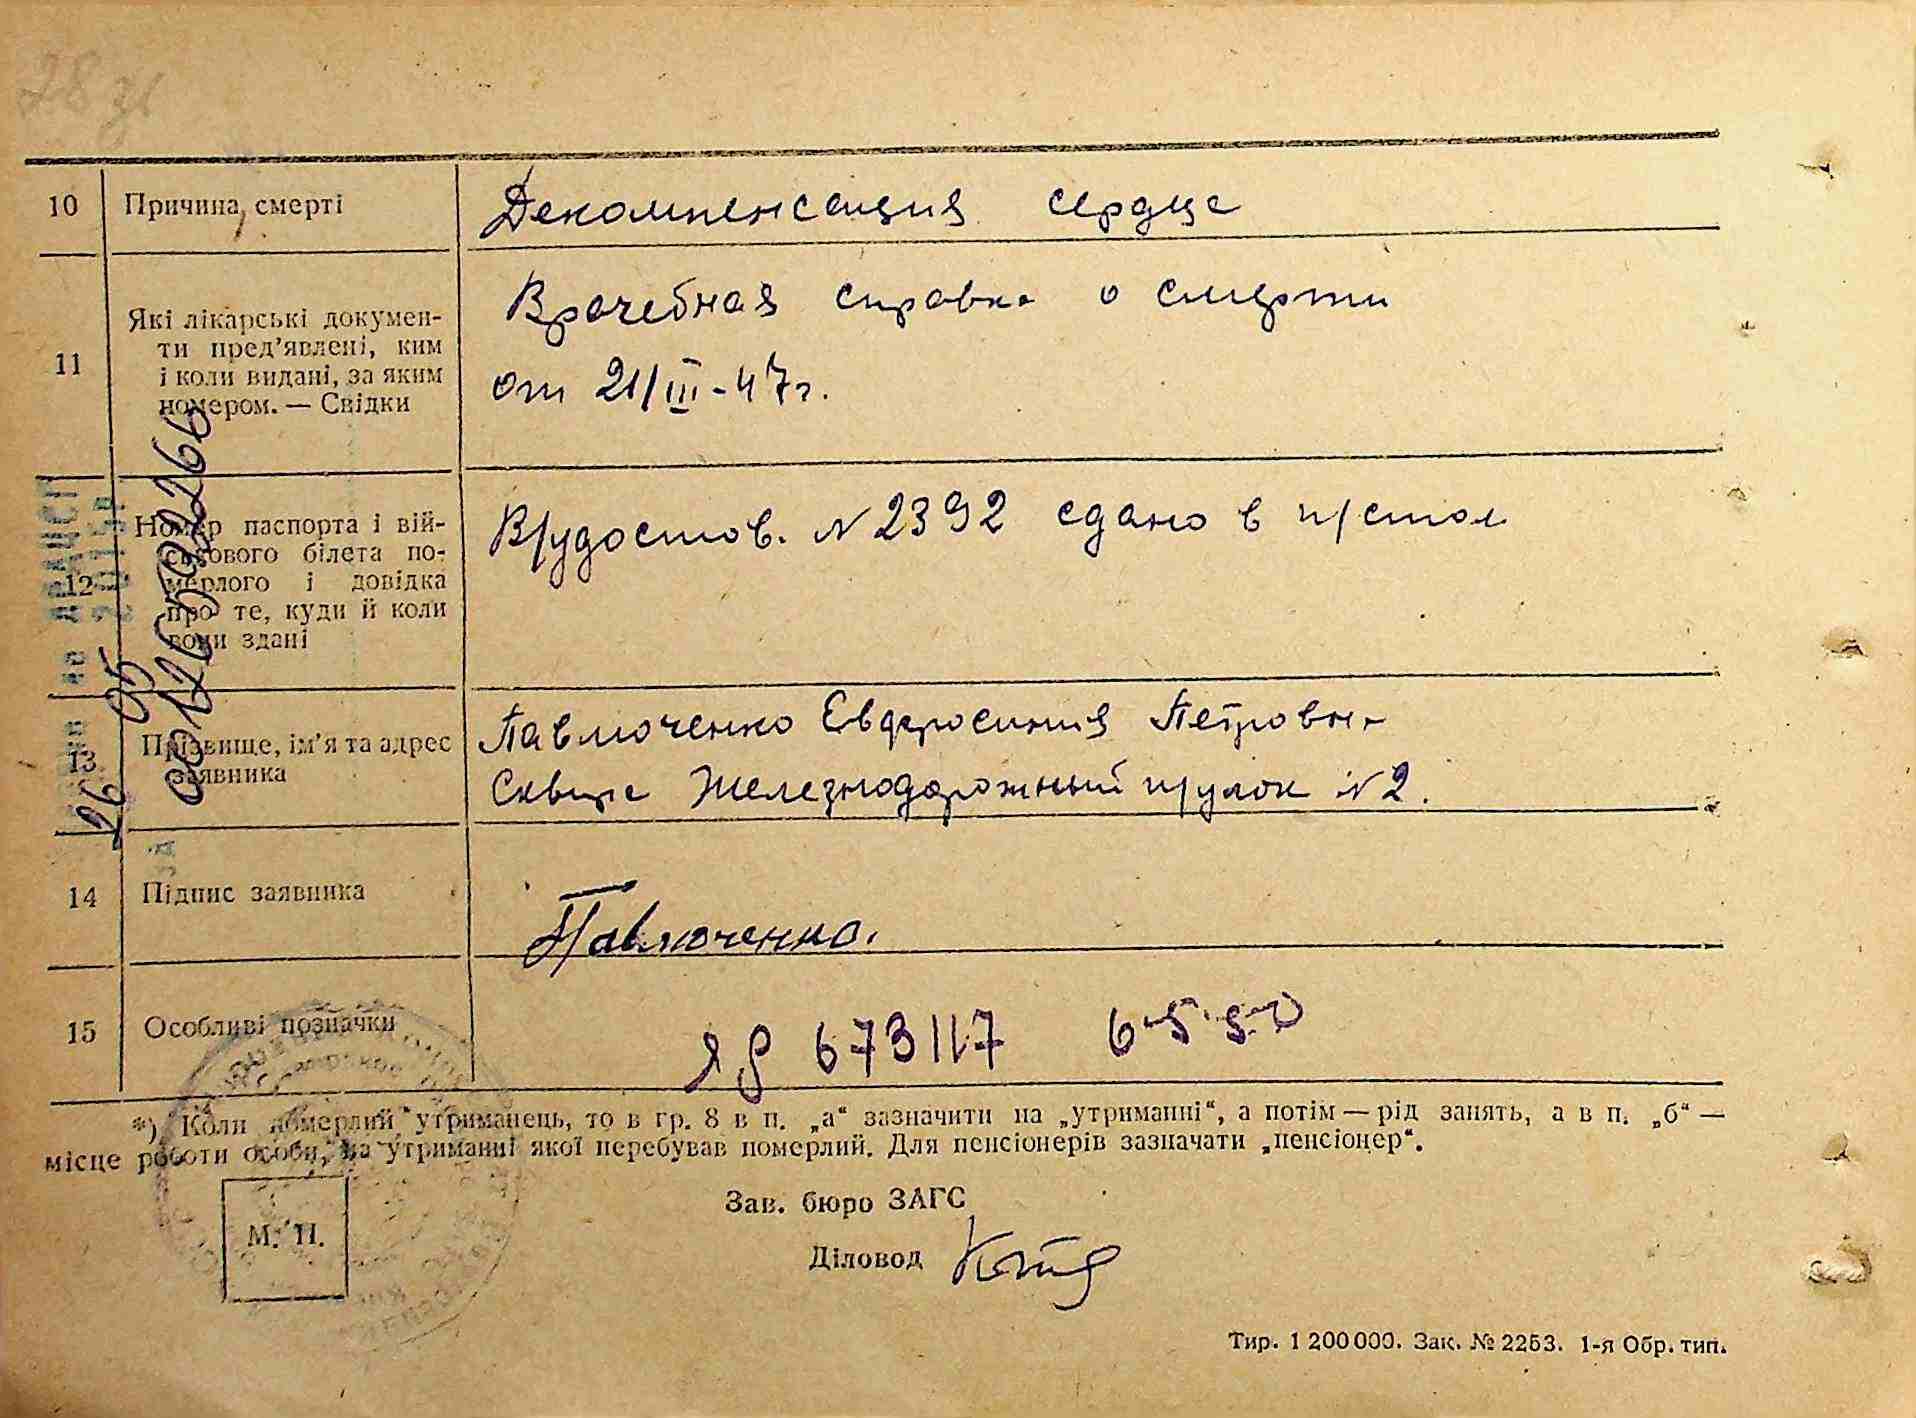 28 зг
10 Причина смерті Декомпенсация сердца
11 Які лікарські докумен-
ти пред’явлені, ким
і коли видані, за яким
номером. — Свідки
Врачебная справка о смерти
от 21/III-47г.
12 Номер паспорта і вій-
ськового білета по-
мерлого і довідка
про те, куди й коли
вони здані
В/удостов. № 2392 сдано в п/стол
13 Прізвище, ім’я та адрес
заявника
Павлюченко Евфросиния Петровна
Сквира Железнодорожный п/улок №2.
14 Підпис заявника Павлюченко.
15 Особливі позначки
ЯЯ 673117 6-5-50
*) Коли померлий утриманець, то в гр. 8 в п. „а“ зазначити на „утриманні“, а потім — рід занять, а в п. „б“ —
місце роботи особи, на утриманні якої перебував померлий. Для пенсіонерів зазначати „пенсіонер“.
М. П.
Зав. бюро ЗАГС
Діловод
Тир. 1 200 000. Зак. № 2253. 1-я Обр. тип.